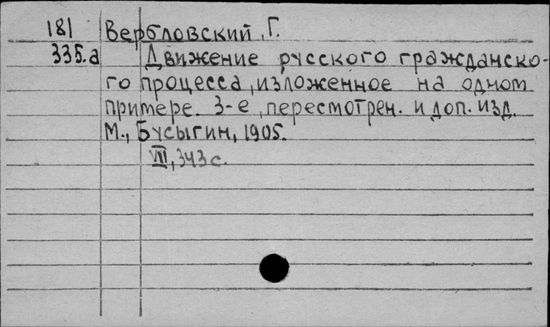 181 Вербловский, Г.
335.а Движение русского гражданско-
го процесса, изложенное на одном
примере. 3-е, пересмотрен. и доп. изд.
М., Бусыгин, 1905.
VIII, 343 с.